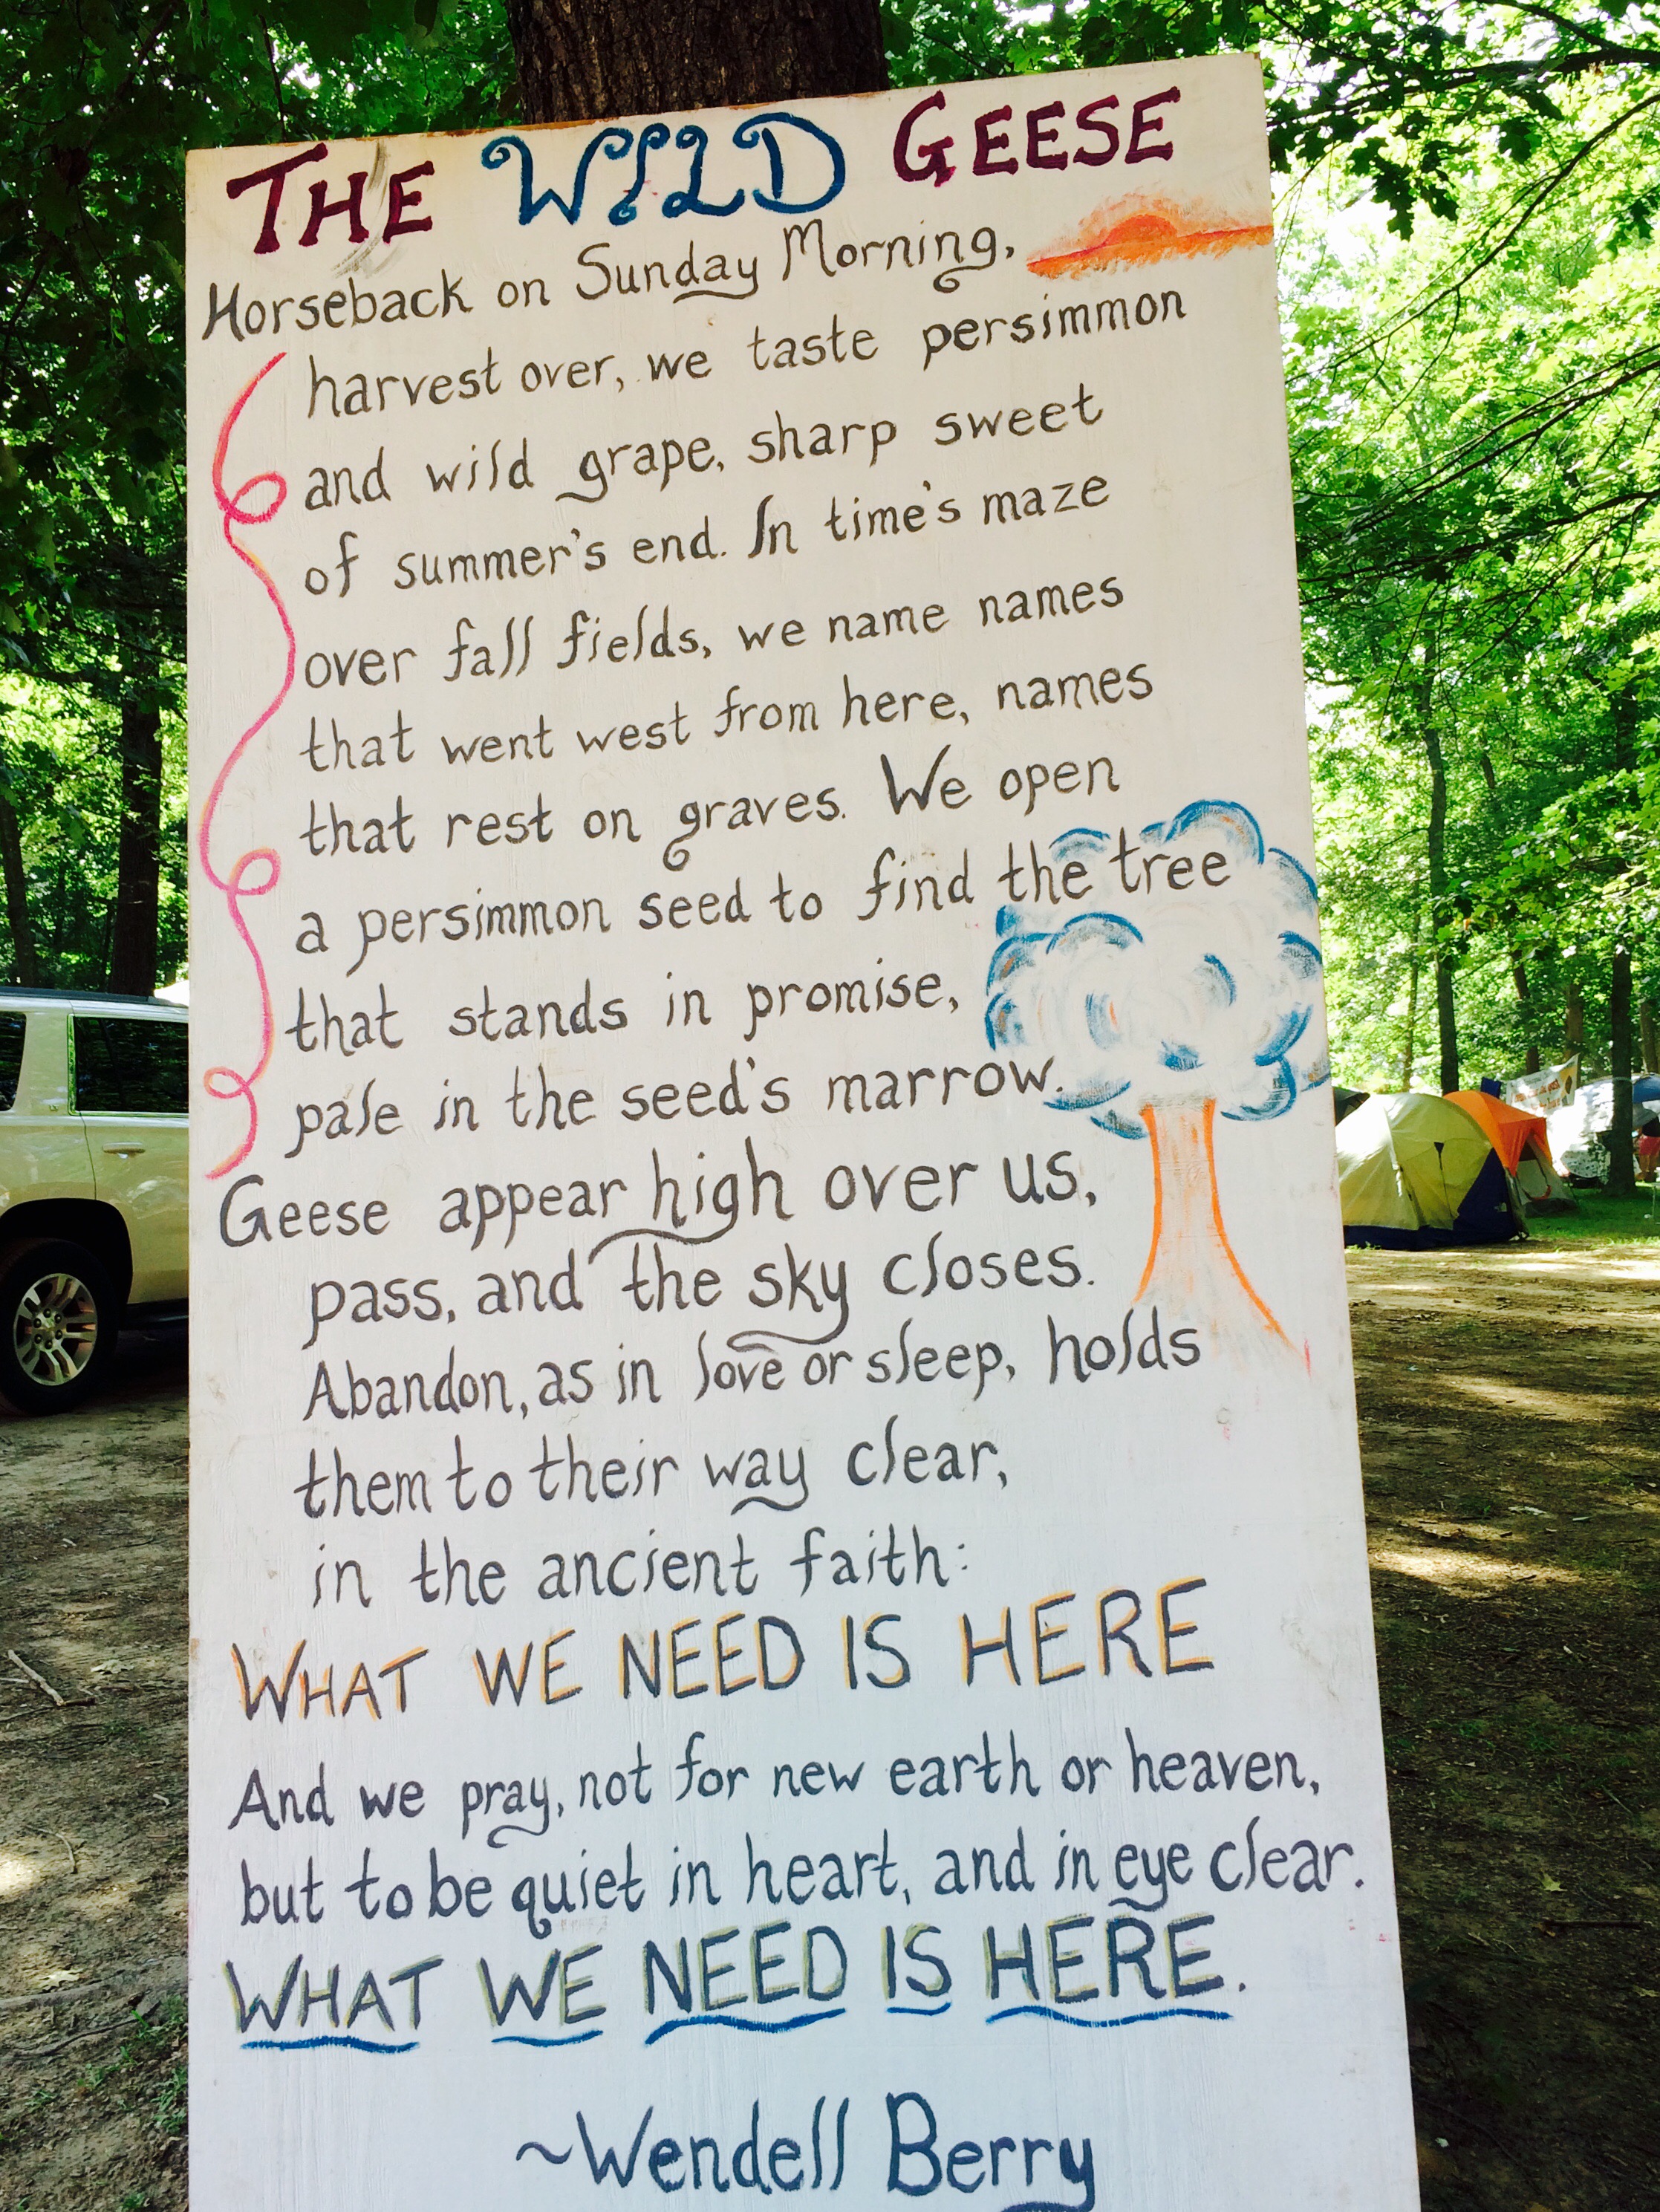 THE WILD GEESE
Horseback on Sunday Morning,
harvest over, we taste persimmon
and wild grape, sharp sweet
of summer's end. In time's maze
over fall fields, we name names
that went west from here, names
that rest on graves. We open
a persimmon seed to find the tree
that stands in promise,
pale in the seed's marrow.
Geese appear high over us,
pass, and the sky closes.
Abandon, as in love or sleep, holds
them to their way clear,
in the ancient faith:
WHAT WE NEED IS HERE
And we pray, not for new earth or heaven,
but to be quiet in heart, and in eye clear.
WHAT WE NEED IS HERE.
~Wendell Berry